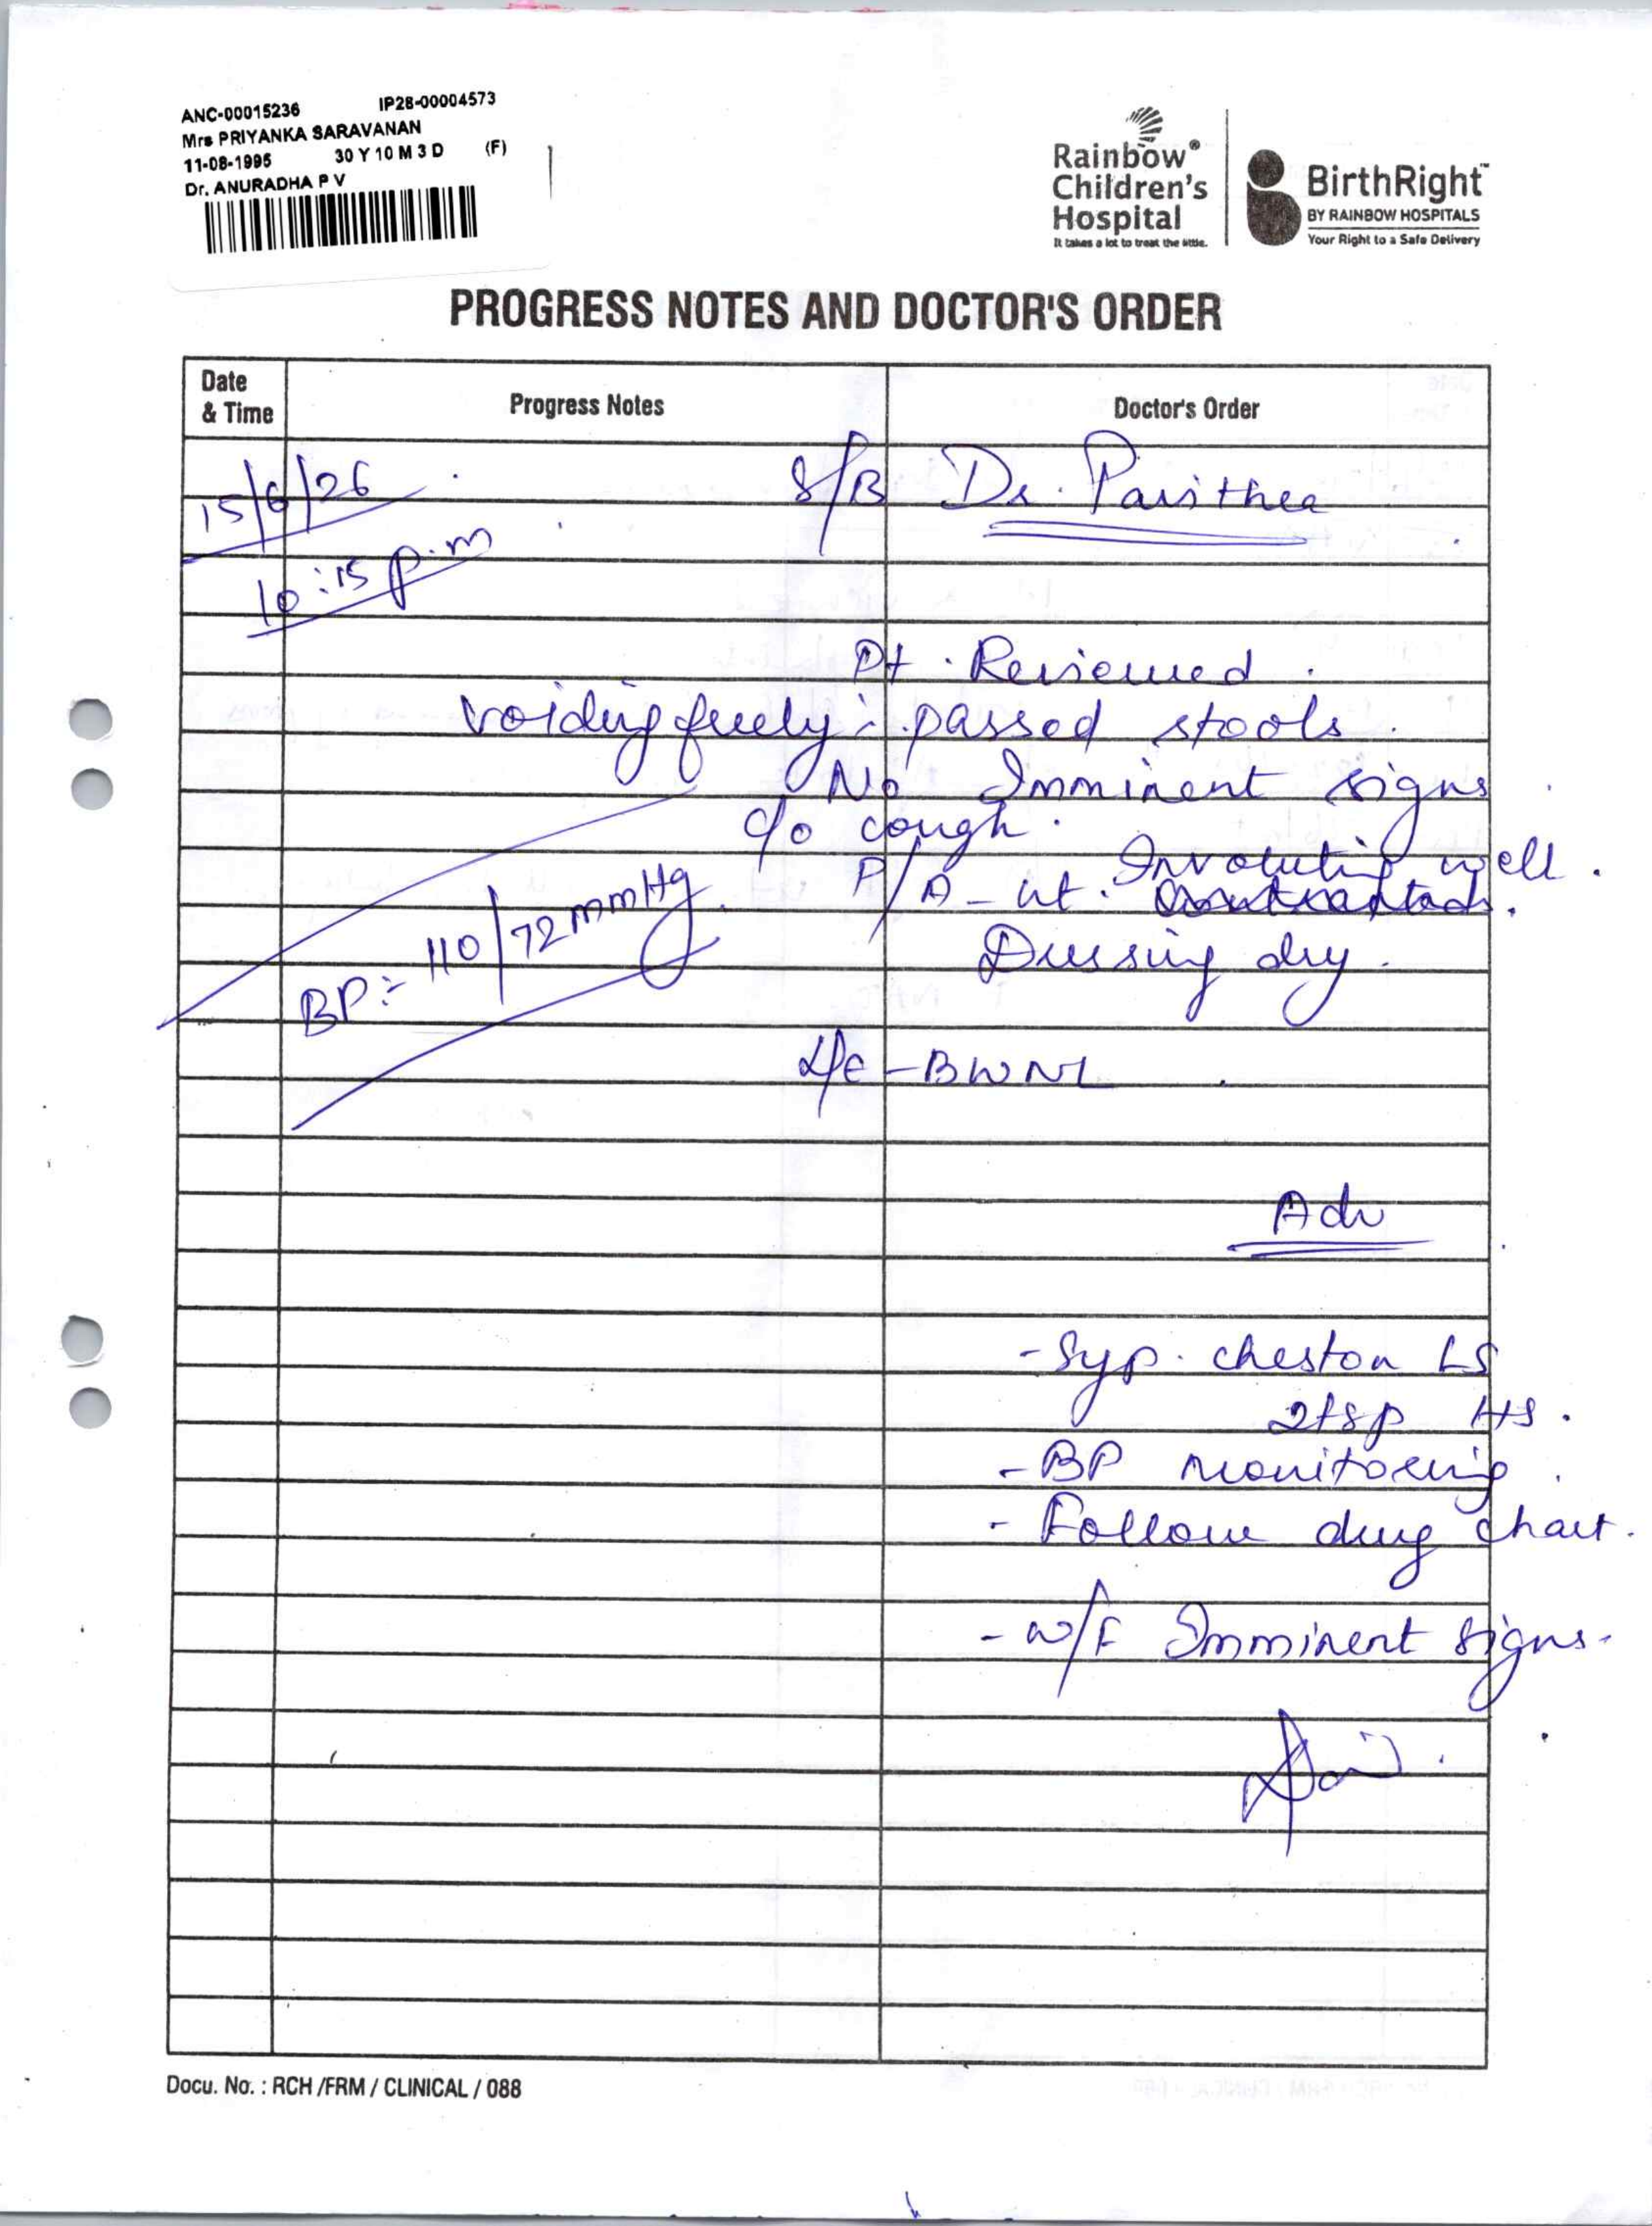 ANC-00015236 IP28-00004573
Mrs PRIYANKA SARAVANAN
11-08-1995 30 Y 10 M 3 D (F)
Dr. ANURADHA P V
Rainbow®
Children's
Hospital
It takes a lot to treat the little.
BirthRight™
BY RAINBOW HOSPITALS
Your Right to a Safe Delivery
PROGRESS NOTES AND DOCTOR'S ORDER
Date
& Time
Progress Notes
Doctor's Order
15/6/26
S/B Dr. Pavithea
10:15 p.m
Pt. Reviewed.
voiding freely: passed stools.
No Imminent signs
c/o cough.
P/A - ut. Involuting well.
contracted.
Dressing dry.
BP:- 110/72 mmHg.
L/E - BWNL
Adv
- Syp. cheston LS
2tsp HS.
- BP monitoring.
- Follow drug chart.
- w/F Imminent signs.
Docu. No. : RCH /FRM / CLINICAL / 088